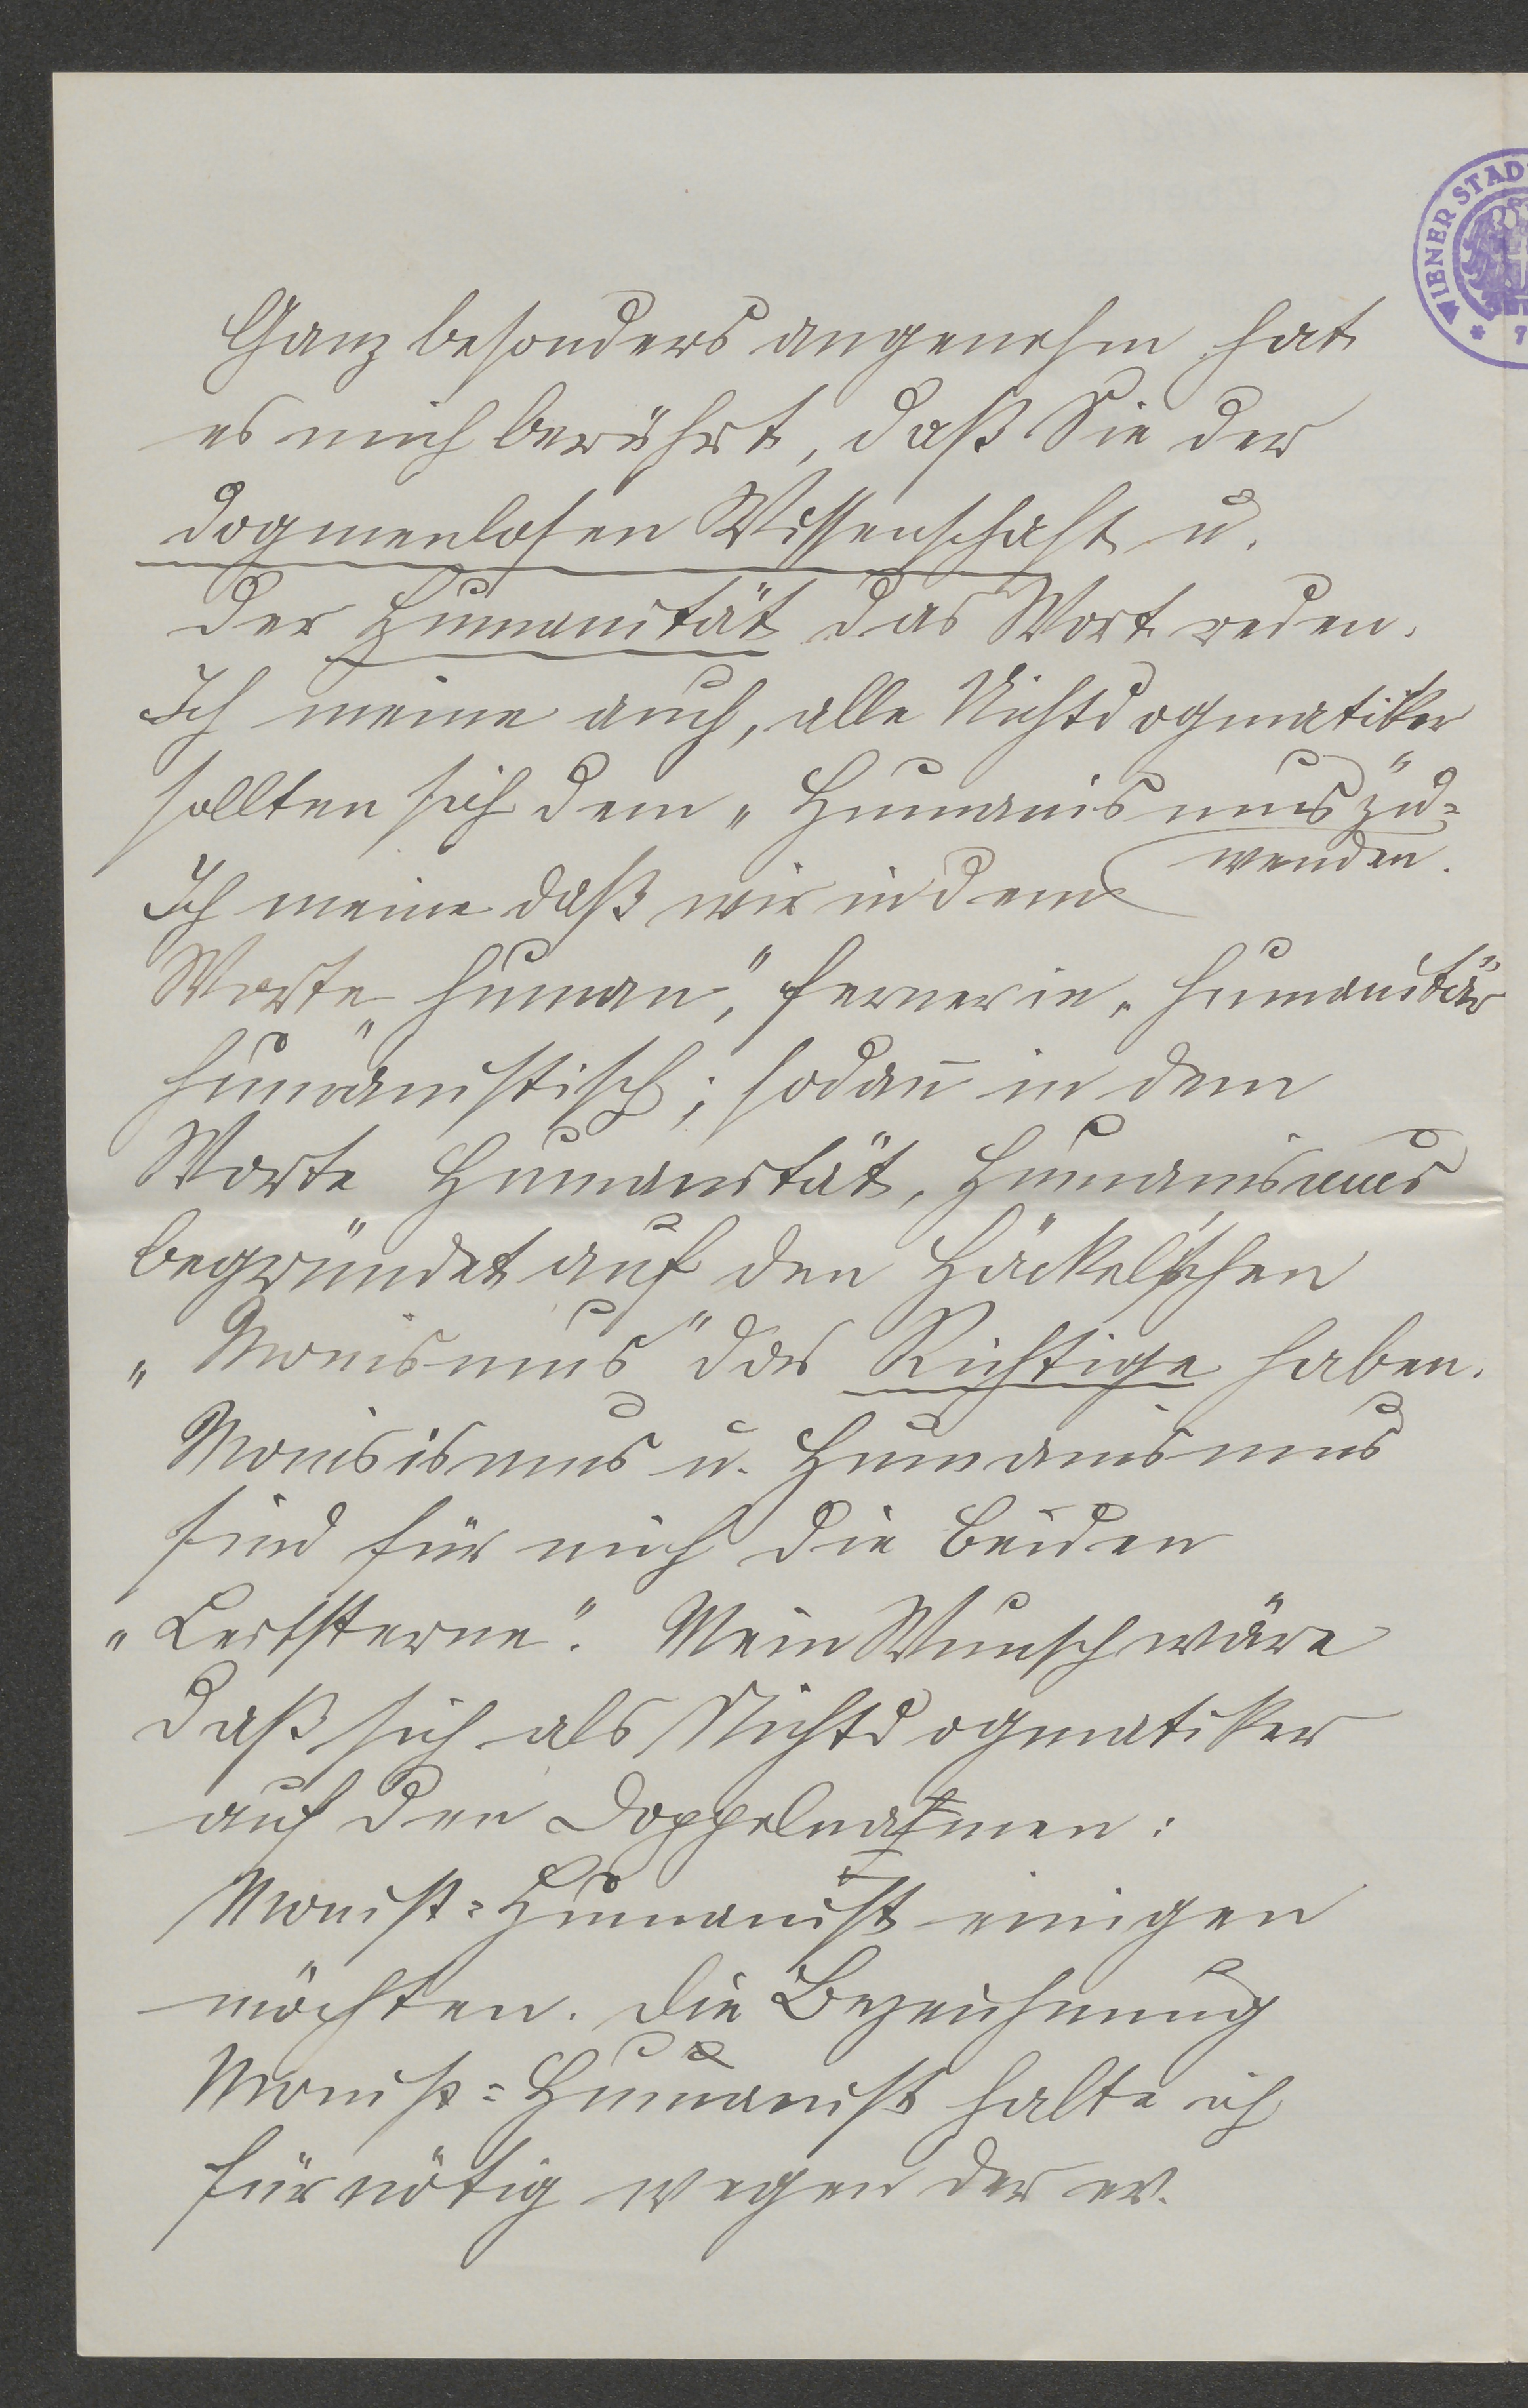 WIENER STAD
7
Ganz besonders angenehm hat
es mich berührt, daß Sie der
dogmenlosen Wissenschaft u.
der Humanität das Wort reden.
Ich meine auch, alle Nichtdogmatiker
sollten sich dem „Humanismus" zu=
wenden.
Ich meine daß wir in dem
Worte „human", ferner in „humanitär"
humanistisch; sodan̄ in dem
Worte Humanität, Humanismus
begründet auf den Häckel'schen
„Monismus" das Richtige haben.
Monisismus u. Humanismus
sind für mich die beiden
„Leitsterne". Mein Wunsch wäre
daß sich als Nichtdogmatiker
auf den Doppelnahmen:
Monist=Humanist einigen
möchten. Die Bezeichnung
Monist=Humanist halte ich
für nötig wegen der ev.